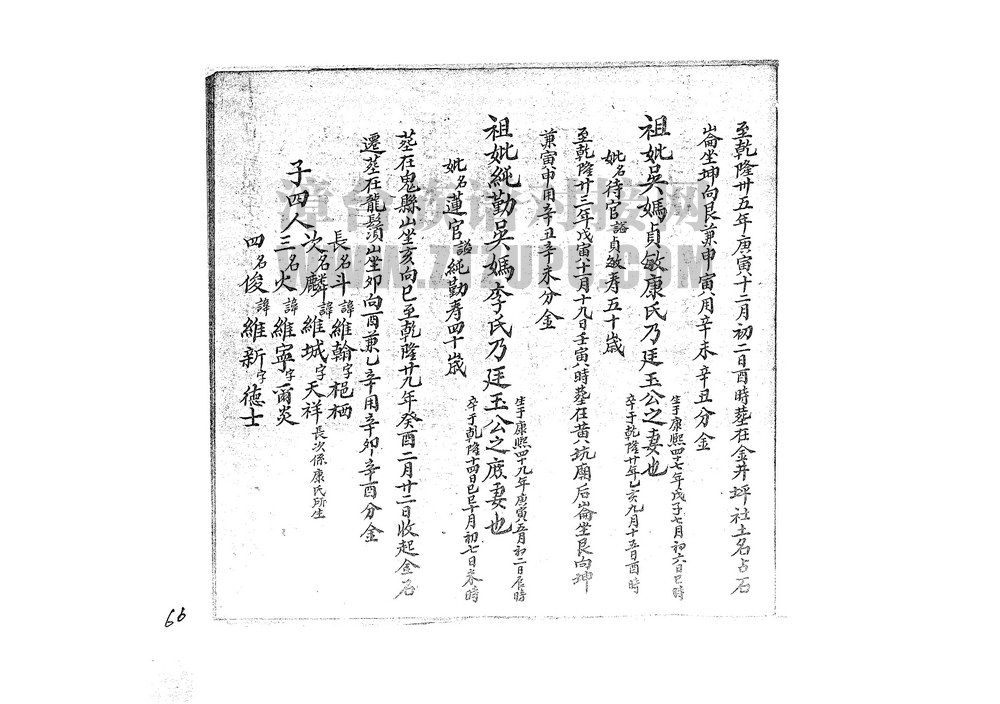 至乾隆卅五年庚寅十二月初二日酉時葬在金井坪社土名占石
崙坐坤向艮兼申寅用辛未辛丑分金
祖妣吳媽貞敏康氏乃廷玉公之妻也
生于康熙四十七年戊子七月初六日巳時
卒于乾隆廿年乙亥九月十五日酉時
妣名待官諡貞敏壽五十歲
至乾隆廿三年戊寅十一月十九日壬寅時葬在黃坑廟后崙坐艮向坤
兼寅申用辛丑辛未分金
祖妣純勤吳媽李氏乃廷玉公之庶妻也
生于康熙四十九年庚寅五月初二日辰時
卒于乾隆十四日己巳十月初七日未時
妣名蓮官諡純勤壽四十歲
葬在鬼縣山坐亥向巳至乾隆十九年癸酉二月廿二日收起金石
遷葬在龍鬚山坐卯向酉兼乙辛用辛卯辛酉分金
子四人
長名斗諱維翰字梧栖
次名麟諱維城字天祥長次係康氏所生
三名火諱維寧字爾炎
四名俊諱維新字德士
漳台族谱对接网
WWW.ZTZUPU.COM
66